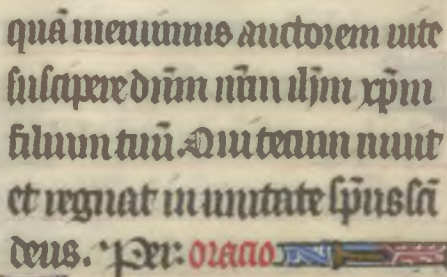 quā meruimus auctorem uite
suscipere dn̄m nr̄m ihm̄ xp̄m
filium tuū. Qui tecum uiuit
et regnat in unitate sp̄us sc̄i
deus. Per: oracio